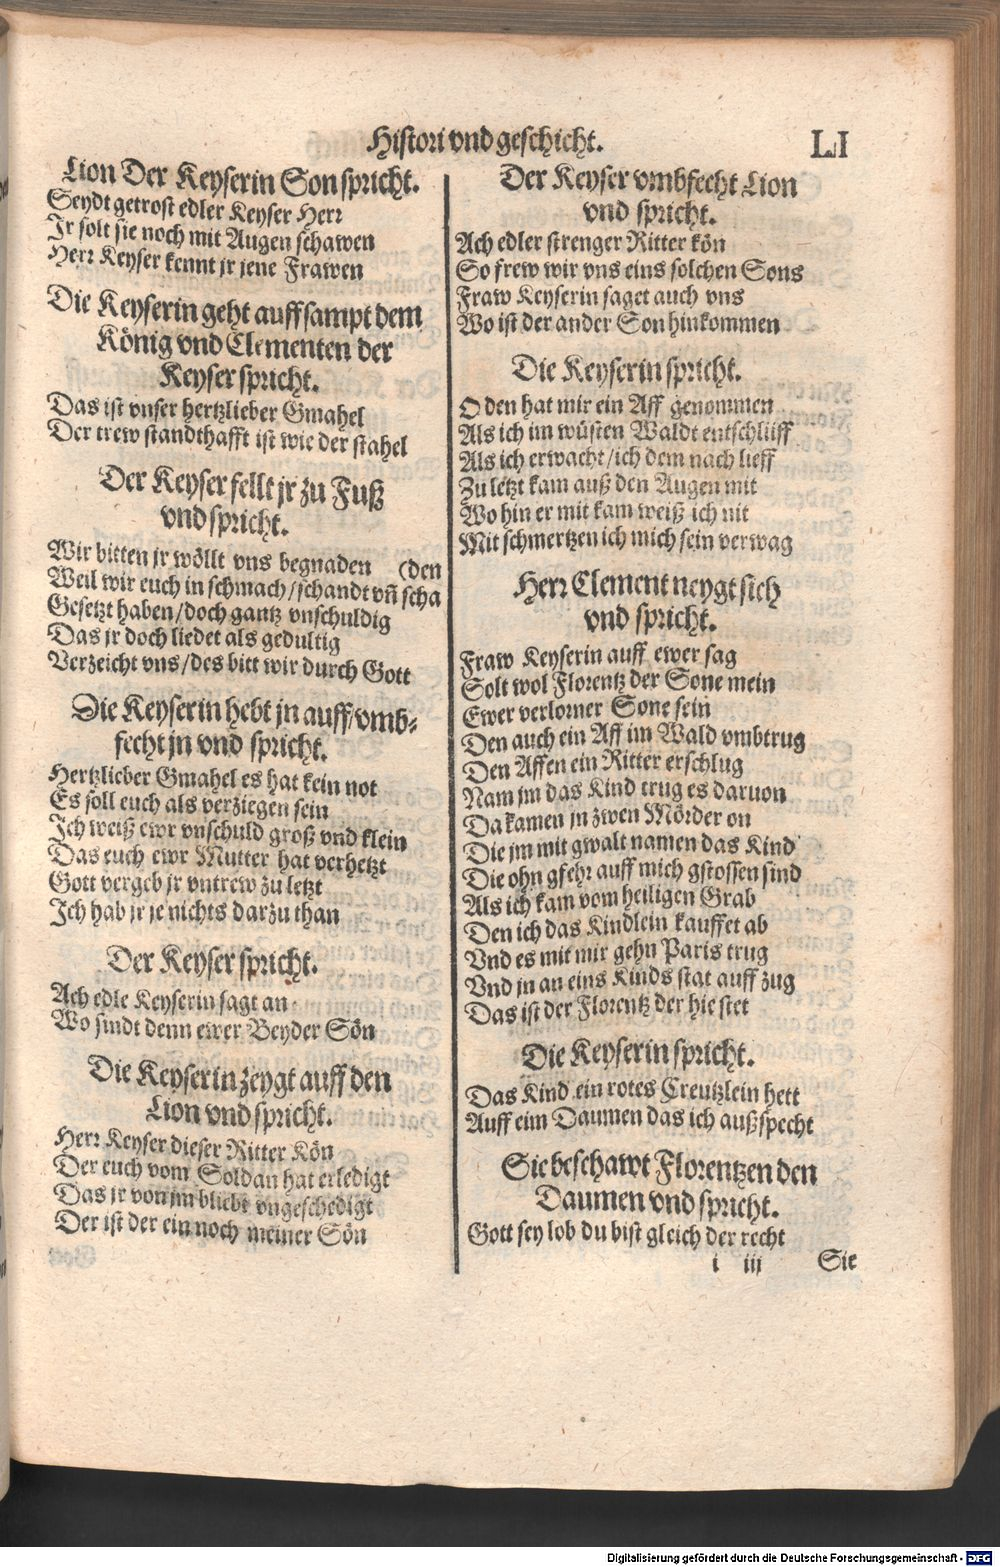 Histori vnd geschicht.
LI
Lion Der Keyserin Son spricht.
Seydt getrost edler Keyser Herr
Ir solt sie noch mit Augen schawen
Herr Keyser kennt jr jene Frawen
Die Keyserin geht auff sampt dem
König vnd Clementen der
Keyser spricht.
Das ist vnser hertzlieber Gmahel
Der trew standthafft ist wie der stahel
Der Keyser fellt jr zu Fuß
vnd spricht.
Wir bitten jr wöllt vns begnaden (den
Weil wir euch in schmach/schandt vn̄ scha
Gesetzt haben/doch gantz vnschuldig
Das jr doch liedet als gedultig
Verzeicht vns/des bitt wir durch Gott
Die Keyserin hebt jn auff/vmb-
fecht jn vnd spricht.
Hertzlieber Gmahel es hat kein not
Es soll euch als verziegen sein
Ich weiß ewr vnschuld groß vnd klein
Das euch ewr Mutter hat verhetzt
Gott vergeb jr vntrew zu letzt
Ich hab jr je nichts darzu than
Der Keyser spricht.
Ach edle Keyserin sagt an
Wo sindt denn ewer Beyder Sön
Die Keyserin zeygt auff den
Lion vnd spricht.
Herr Keyser dieser Ritter Kön
Der euch vom Soldan hat erledigt
Das jr von jm bliebt vngeschedigt
Der ist der ein noch meiner Sön
Der Keyser vmbfecht Lion
vnd spricht.
Ach edler strenger Ritter kön
So frew wir vns eins solchen Sons
Fraw Keyserin saget auch vns
Wo ist der ander Son hinkommen
Die Keyserin spricht.
O den hat mir ein Aff genommen
Als ich im wüsten Waldt entschlüff
Als ich erwacht/ich dem nach lieff
Zu letzt kam auß den Augen mit
Wo hin er mit kam weiß ich nit
Mit schmertzen ich mich sein verwag
Herr Clement neygt sich
vnd spricht.
Fraw Keyserin auff ewer sag
Solt wol Florentz der Sone mein
Ewer verlorner Sone sein
Den auch ein Aff im Wald vmbtrug
Den Affen ein Ritter erschlug
Nam jm das Kind trug es daruon
Da kamen jn zwen Mörder on
Die jm mit gwalt namen das Kind
Die ohn gfehr auff mich gstossen sind
Als ich kam vom heiligen Grab
Den ich das Kindlein kauffet ab
Vnd es mit mir gehn Paris trug
Vnd jn an eins Kinds stat auff zug
Das ist der Florentz der hie stet
Die Keyserin spricht.
Das Kind ein rotes Creutzlein hett
Auff eim Daumen das ich außspecht
Sie beschawt Florentzen den
Daumen vnd spricht.
Gott sey lob du bist gleich der recht
i iij
Sie
Digitalisierung gefördert durch die Deutsche Forschungsgemeinschaft - DFG